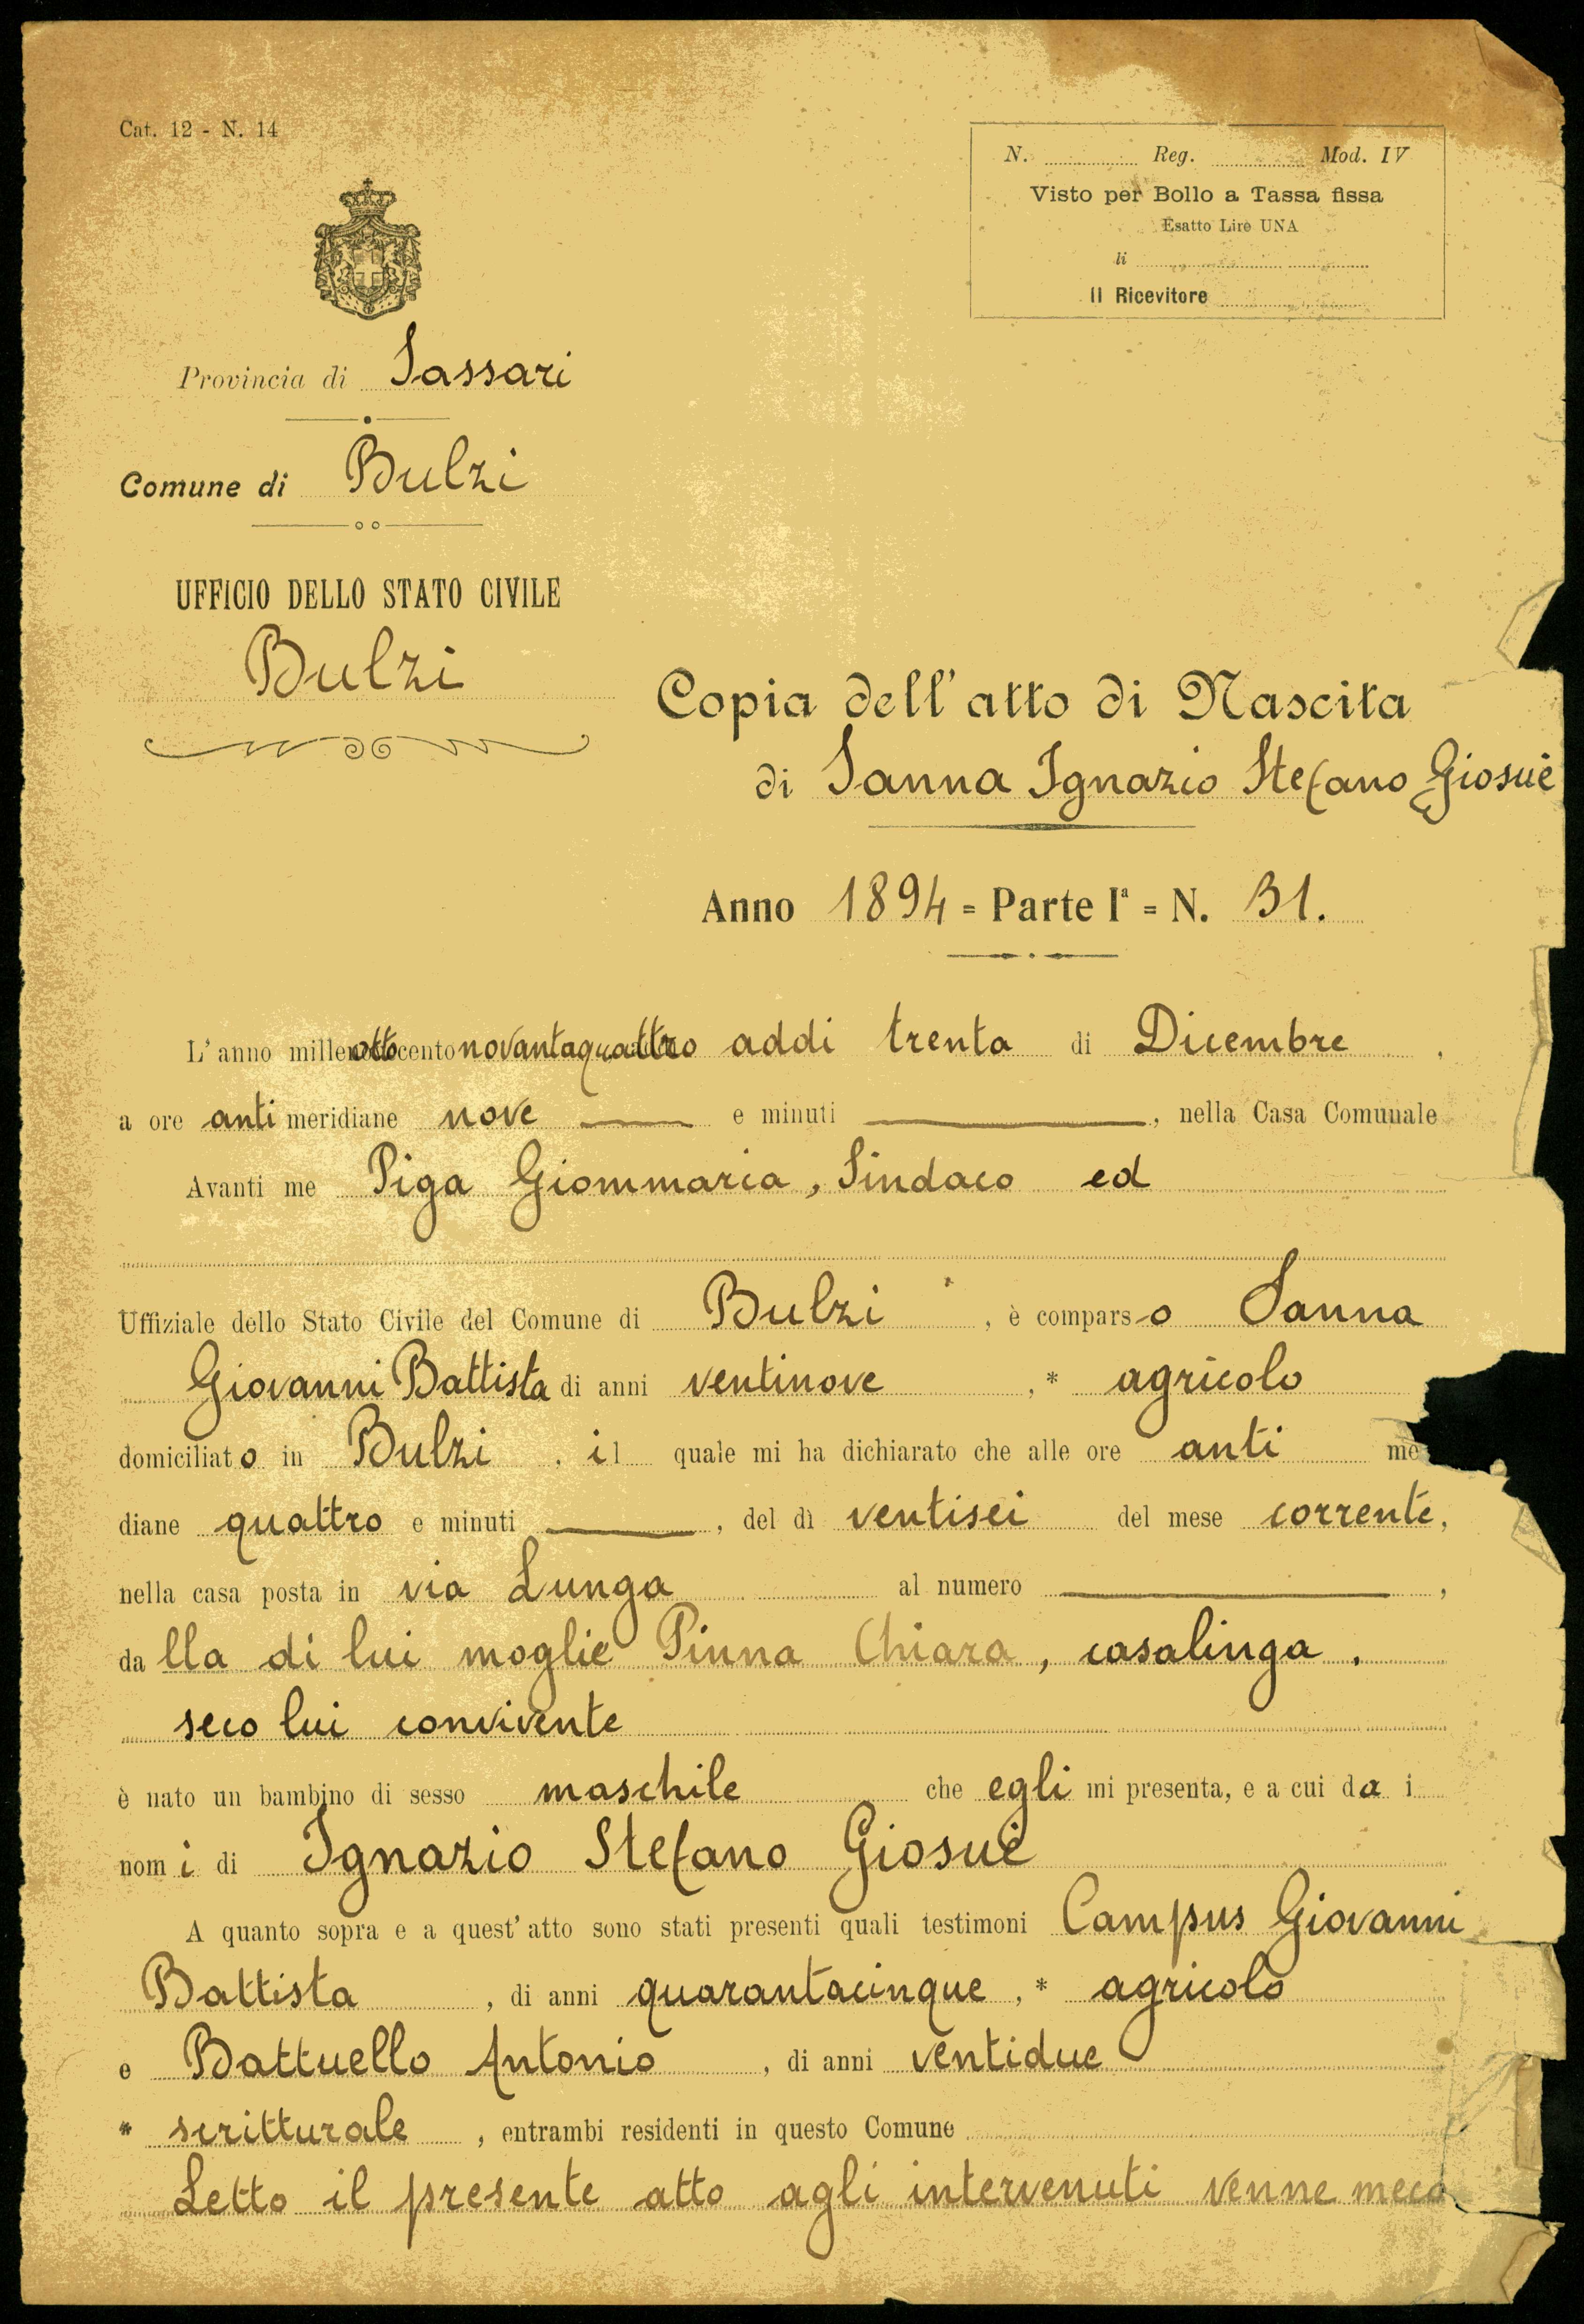 Cat. 12 - N. 14
N. Reg. Mod. IV
Visto per Bollo a Tassa fissa
Esatto Lire UNA
li
Il Ricevitore
Provincia di Sassari
Comune di Bulzi
UFFICIO DELLO STATO CIVILE
Bulzi
Copia dell'atto di Nascita
di Sanna Ignazio Stefano Giosuè
Anno 1894 = Parte Iª = N. 31.
L'anno milleottocentonovantaquattro addi trenta di Dicembre,
a ore antimeridiane nove e minuti , nella Casa Comunale
Avanti me Piga Giommaria, Sindaco ed
Uffiziale dello Stato Civile del Comune di Bulzi , è comparso Sanna
Giovanni Battista di anni ventinove , * agricolo
domiciliato in Bulzi , il quale mi ha dichiarato che alle ore anti me
diane quattro e minuti , del dì ventisei del mese corrente,
nella casa posta in via Lunga al numero ,
dalla di lui moglie Pinna Chiara, casalinga,
seco lui convivente
è nato un bambino di sesso maschile che egli mi presenta, e a cui da i
nomi di Ignazio Stefano Giosuè
A quanto sopra e a quest'atto sono stati presenti quali testimoni Campus Giovanni
Battista , di anni quarantacinque , * agricolo
e Battuello Antonio , di anni ventidue
* scritturale , entrambi residenti in questo Comune
Letto il presente atto agli intervenuti venne meco